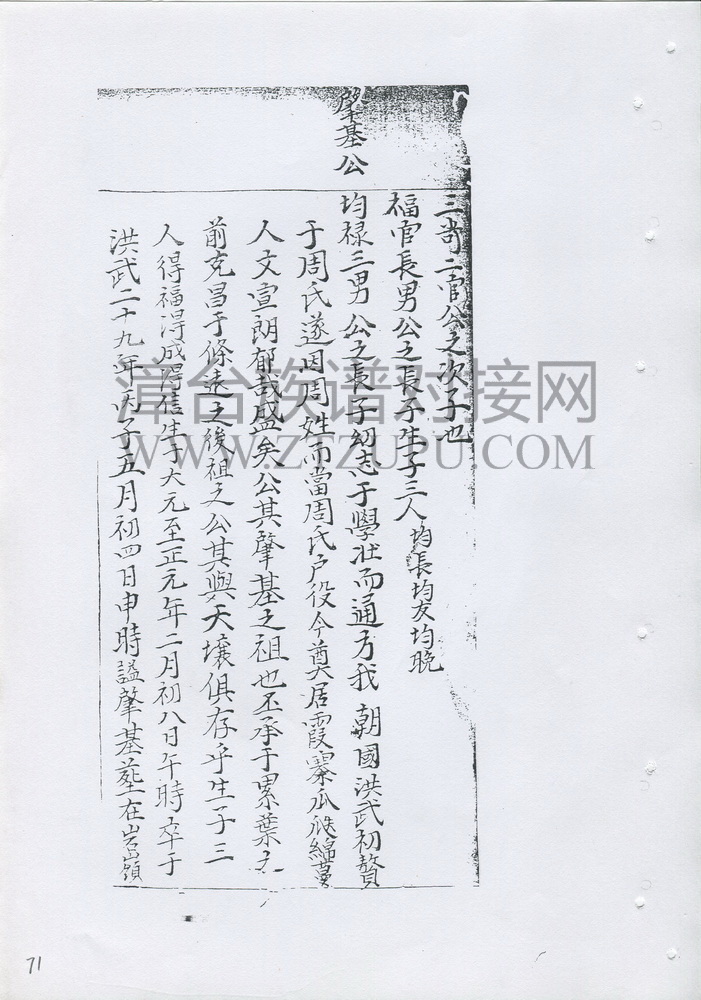 肇基公
三哥二官公之次子也
福官長男公之長子生子三人 均長均友均晚
均祿三男公之長子幼志于學壯而通方我 朝國洪武初贅
于周氏遂因周姓而當周氏戶役今奠居霞寨瓜瓞綿蔓
人文宣朗郁哉盛矣公其肇基之祖也丕承于累葉之
前克昌于條遠之後祖之公其與天壤俱存乎生子三
人得福得成得信生于大元至正元年二月初八日午時卒于
洪武二十九年丙子五月初四日申時謚肇基塟在岩嶺
漳台族谱对接网
WWW.ZTZUPU.COM
71